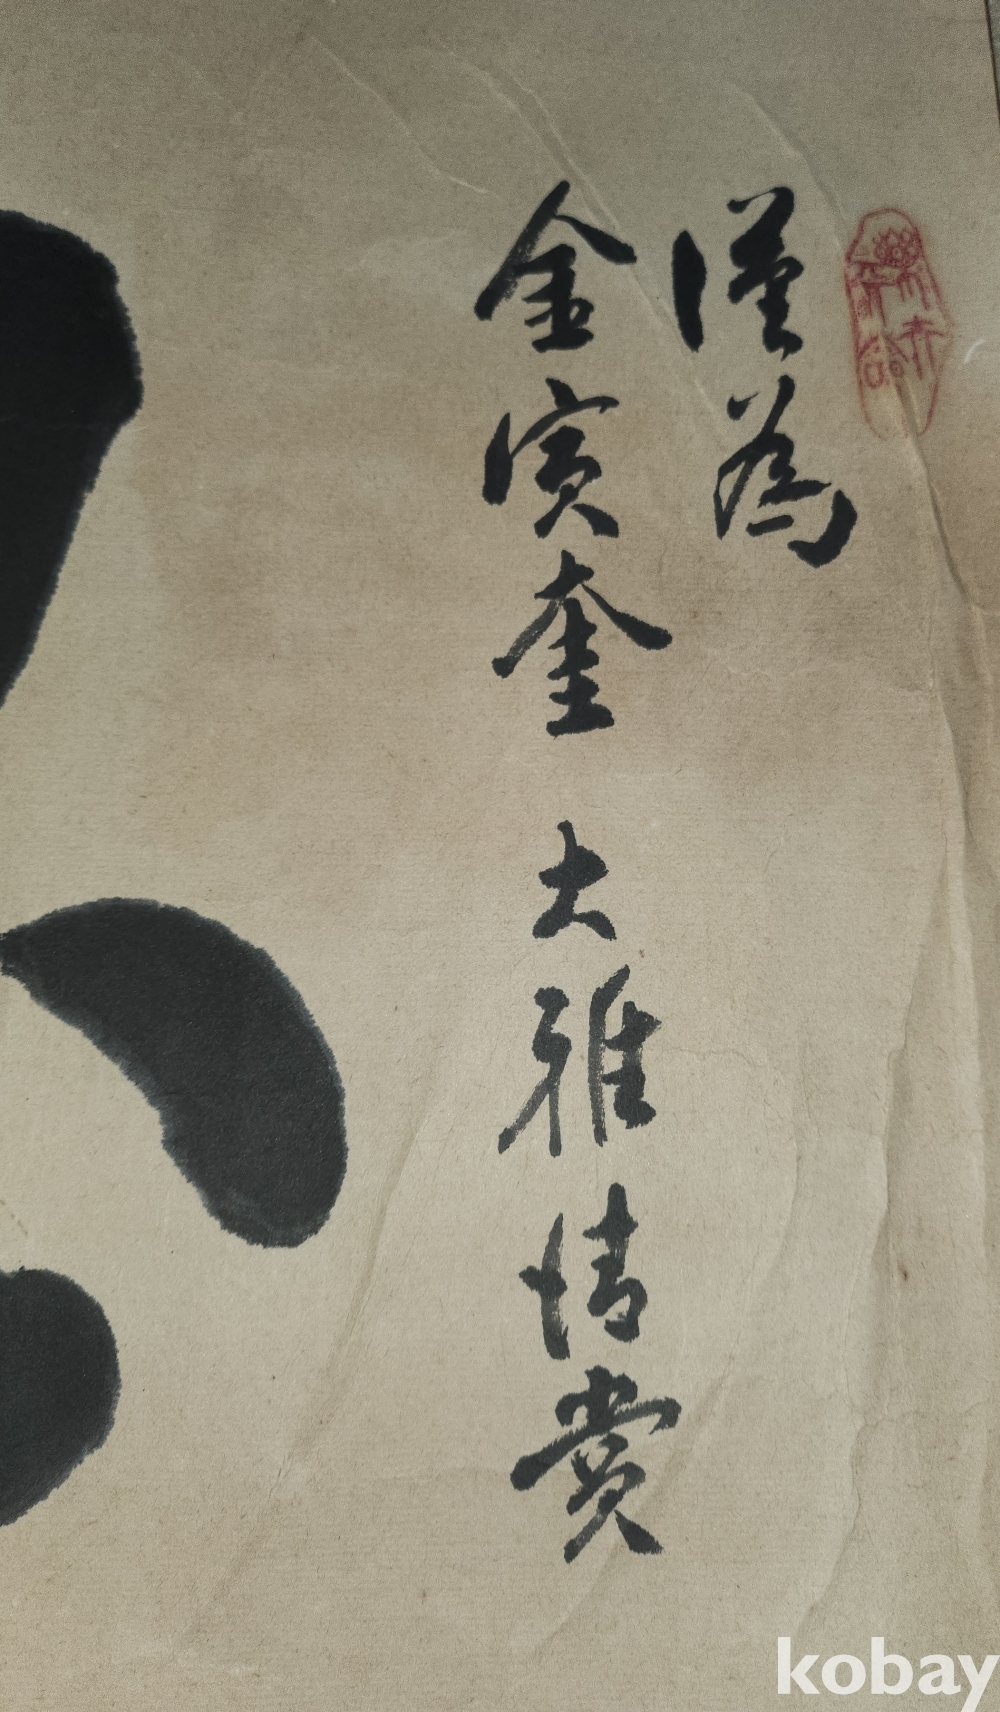 謹為
金寅奎 大雅情賞
kobay